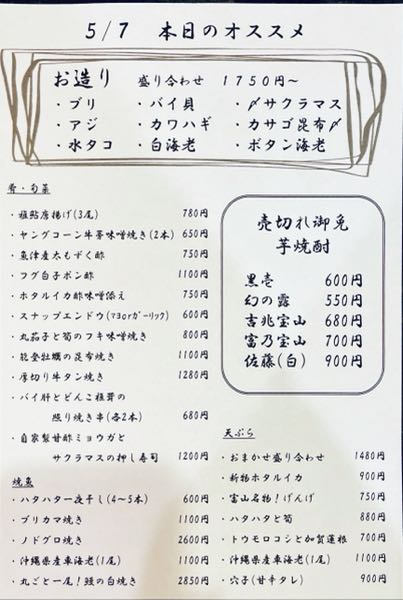 5/7 本日のオススメ
お造り 盛り合わせ 1750円~
・ブリ ・バイ貝 ・〆サクラマス
・アジ ・カワハギ ・カサゴ昆布〆
・水タコ ・白海老 ・ボタン海老
肴・旬菜
・稚鮎唐揚げ(3尾) 780円
・ヤングコーン牛蒡味噌焼き(2本) 650円
・魚津産太もずく酢 750円
・フグ白子ポン酢 1100円
・ホタルイカ酢味噌添え 750円
・スナップエンドウ(マヨorガーリック) 600円
・丸茄子と筍のフキ味噌焼き 800円
・能登牡蠣の昆布焼き 1100円
・厚切り牛タン焼き 1280円
・バイ肝とどんこ椎茸の
照り焼き串(各2本) 680円
・自家製甘酢ミョウガと
サクラマスの押し寿司 1200円
焼魚
・ハタハタ一夜干し(4~5本) 600円
・ブリカマ焼き 1100円
・ノドグロ焼き 2600円
・沖縄県産車海老(1尾) 1100円
・丸ごと一尾!鰻の白焼き 2850円
売切れ御免
芋焼酎
黒壱 600円
幻の露 550円
吉兆宝山 680円
富乃宝山 700円
佐藤(白) 900円
天ぷら
・おまかせ盛り合わせ 1480円
・新物ホタルイカ 900円
・富山名物!げんげ 750円
・ハタハタと筍 880円
・トウモロコシと加賀蓮根 700円
・沖縄県産車海老(1尾) 1100円
・穴子(甘辛タレ) 900円